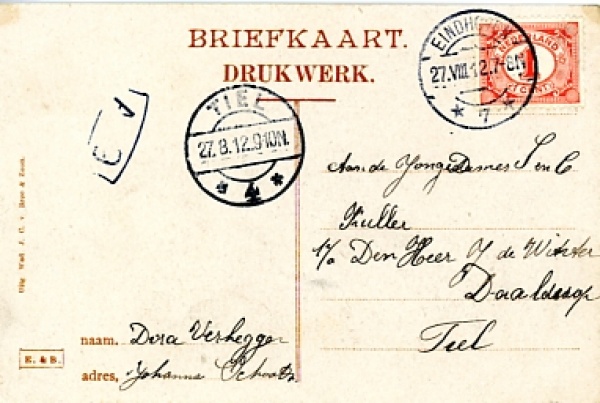 BRIEFKAART.
DRUKWERK.
EINDHOVEN
27.VIII.12.7-8N
* 7 *
NEDERLAND
1
CENT
TIEL
27.8.12.9-10N.
* 4 *
Aan de Jonge Dames S en C
Kuller
p/a Den Heer J de Winter
Daalderop
Tiel
Uitg. Wed. J. C. v. & Zoon.
E. & B.
naam. Dora Verheggen
adres, Johanna Schoots